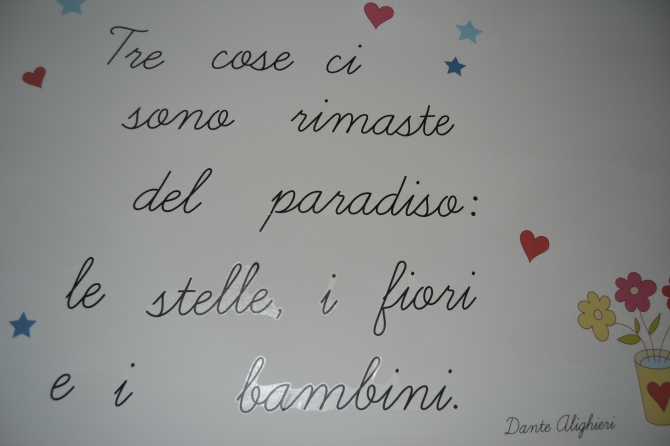 Tre cose ci
sono rimaste
del paradiso:
le stelle, i fiori
e i bambini.
Dante Alighieri